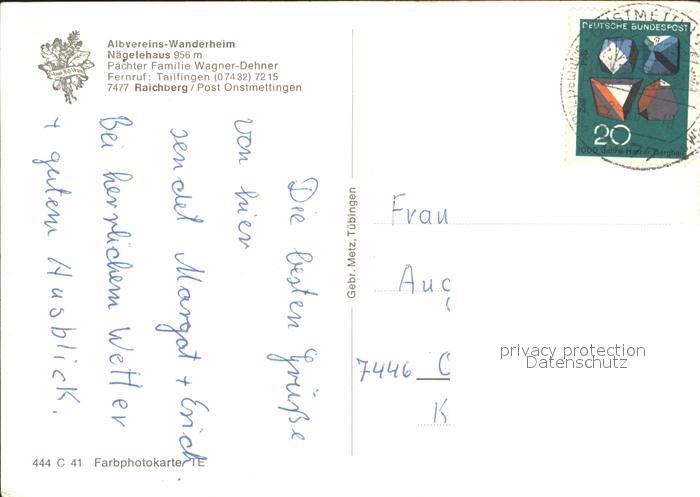 Albvereins-Wanderheim
Nägelehaus 956 m
Pächter Familie Wagner-Dehner
Fernruf: Tailfingen (07432) 7215
7477 Raichberg / Post Onstmettingen
Die besten Grüße
von hier
sendet Margot + Erich.
Bei herrlichem Wetter
+ gutem Ausblick.
444 C 41 Farbphotokarte TE
Gebr. Metz, Tübingen
DEUTSCHE BUNDESPOST
20
1000 Jahre Harzer Bergbau
Frau
Aug
7446
K
privacy protection
Datenschutz